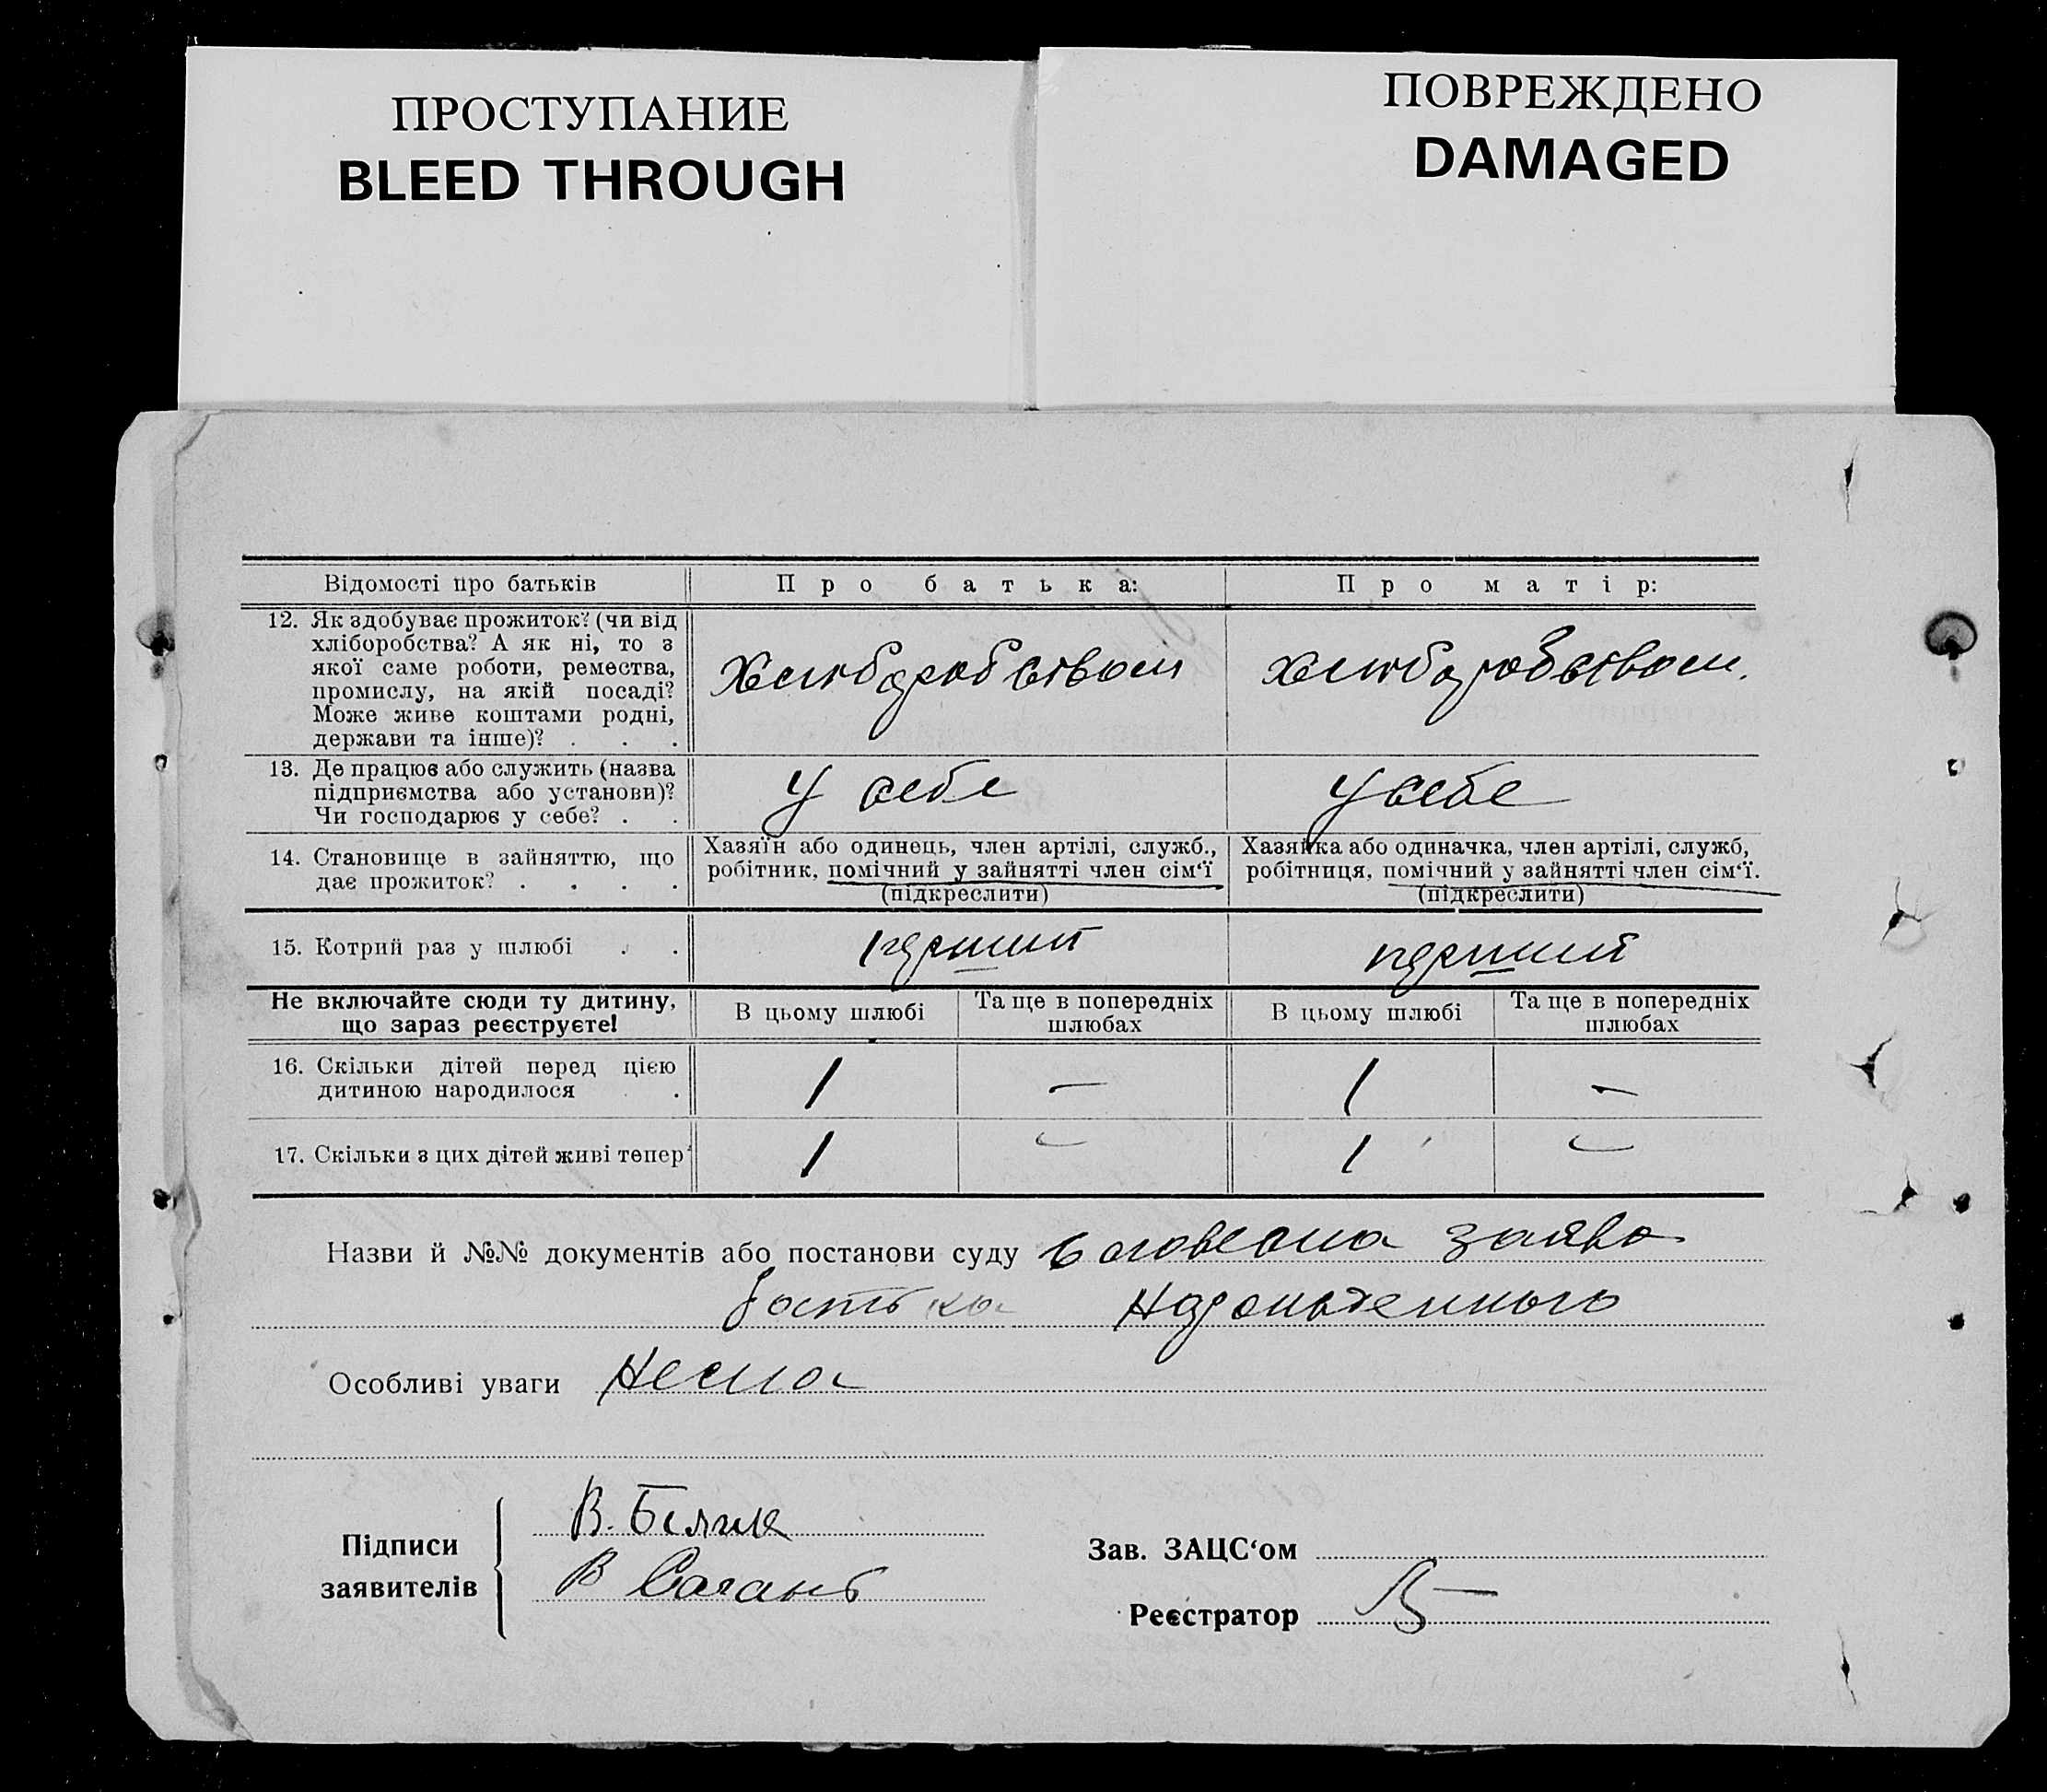 ПРОСТУПАНИЕ
BLEED THROUGH
ПОВРЕЖДЕНО
DAMAGED
Відомості про батьків
Про батька:
Про матір:
12. Як здобуває прожиток? (чи від
хліборобства? А як ні, то з
якої саме роботи, ремества,
промислу, на якій посаді?
Може живе коштами родні,
держави та інше)? . . .
Хлибаробством
хлибаробством.
13. Де працює або служить (назва
підприємства або установи)?
Чи господарює у себе? . .
У себе
У себе
14. Становище в зайняттю, що
дає прожиток? . . . .
Хазяїн або одинець, член артілі, служб.,
робітник, помічний у зайнятті член сім‘ї
(підкреслити)
Хазяйка або одиначка, член артілі, служб,
робітниця, помічний у зайнятті член сім‘ї.
(підкреслити)
15. Котрий раз у шлюбі . .
перший
перший
Не включайте сюди ту дитину,
що зараз реєструєте!
В цьому шлюбі
Та ще в попередніх
шлюбах
В цьому шлюбі
Та ще в попередніх
шлюбах
16. Скільки дітей перед цією
дитиною народилося .
1
—
1
—
17. Скільки з цих дітей живі тепер
1
—
1
—
Назви й №№ документів або постанови суду словесна заява
батька
Особливі уваги Нема
Підписи
заявителів
В. Біляк
В
Зав. ЗАЦС‘ом
Реєстратор